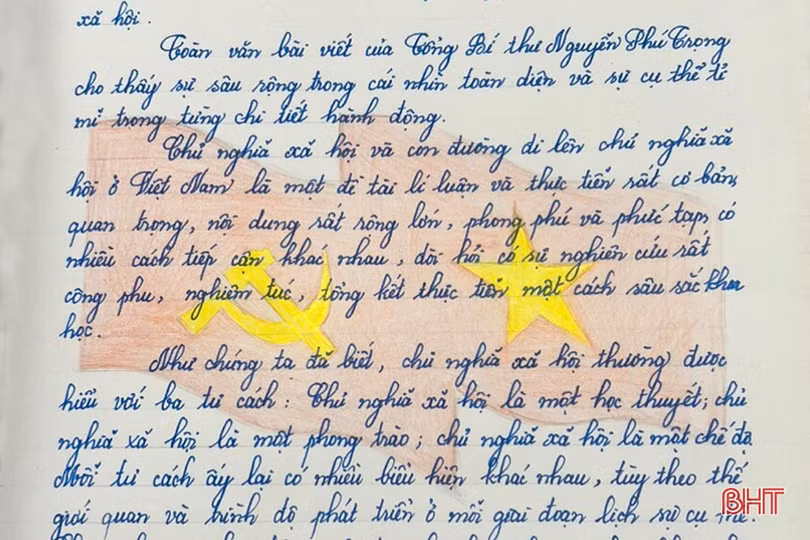 xã hội.
Toàn văn bài viết của Tổng Bí thư Nguyễn Phú Trọng
cho thấy sự sâu rộng trong cái nhìn toàn diện và sự cụ thể tỉ
mỉ trong từng chi tiết hành động.
Chủ nghĩa xã hội và con đường đi lên chủ nghĩa xã
hội ở Việt Nam là một đề tài lí luận và thực tiễn rất cơ bản,
quan trọng, nội dung rất rộng lớn, phong phú và phức tạp, có
nhiều cách tiếp cận khác nhau, đòi hỏi có sự nghiên cứu rất
công phu, nghiêm túc, tổng kết thực tiễn một cách sâu sắc khoa
học.
Như chúng ta đã biết, chủ nghĩa xã hội thường được
hiểu với ba tư cách: Chủ nghĩa xã hội là một học thuyết; chủ
nghĩa xã hội là một phong trào; chủ nghĩa xã hội là một chế độ.
Mỗi tư cách ấy lại có nhiều biểu hiện khác nhau, tùy theo thế
giới quan và trình độ phát triển ở mỗi giai đoạn lịch sử cụ thể.
BHT